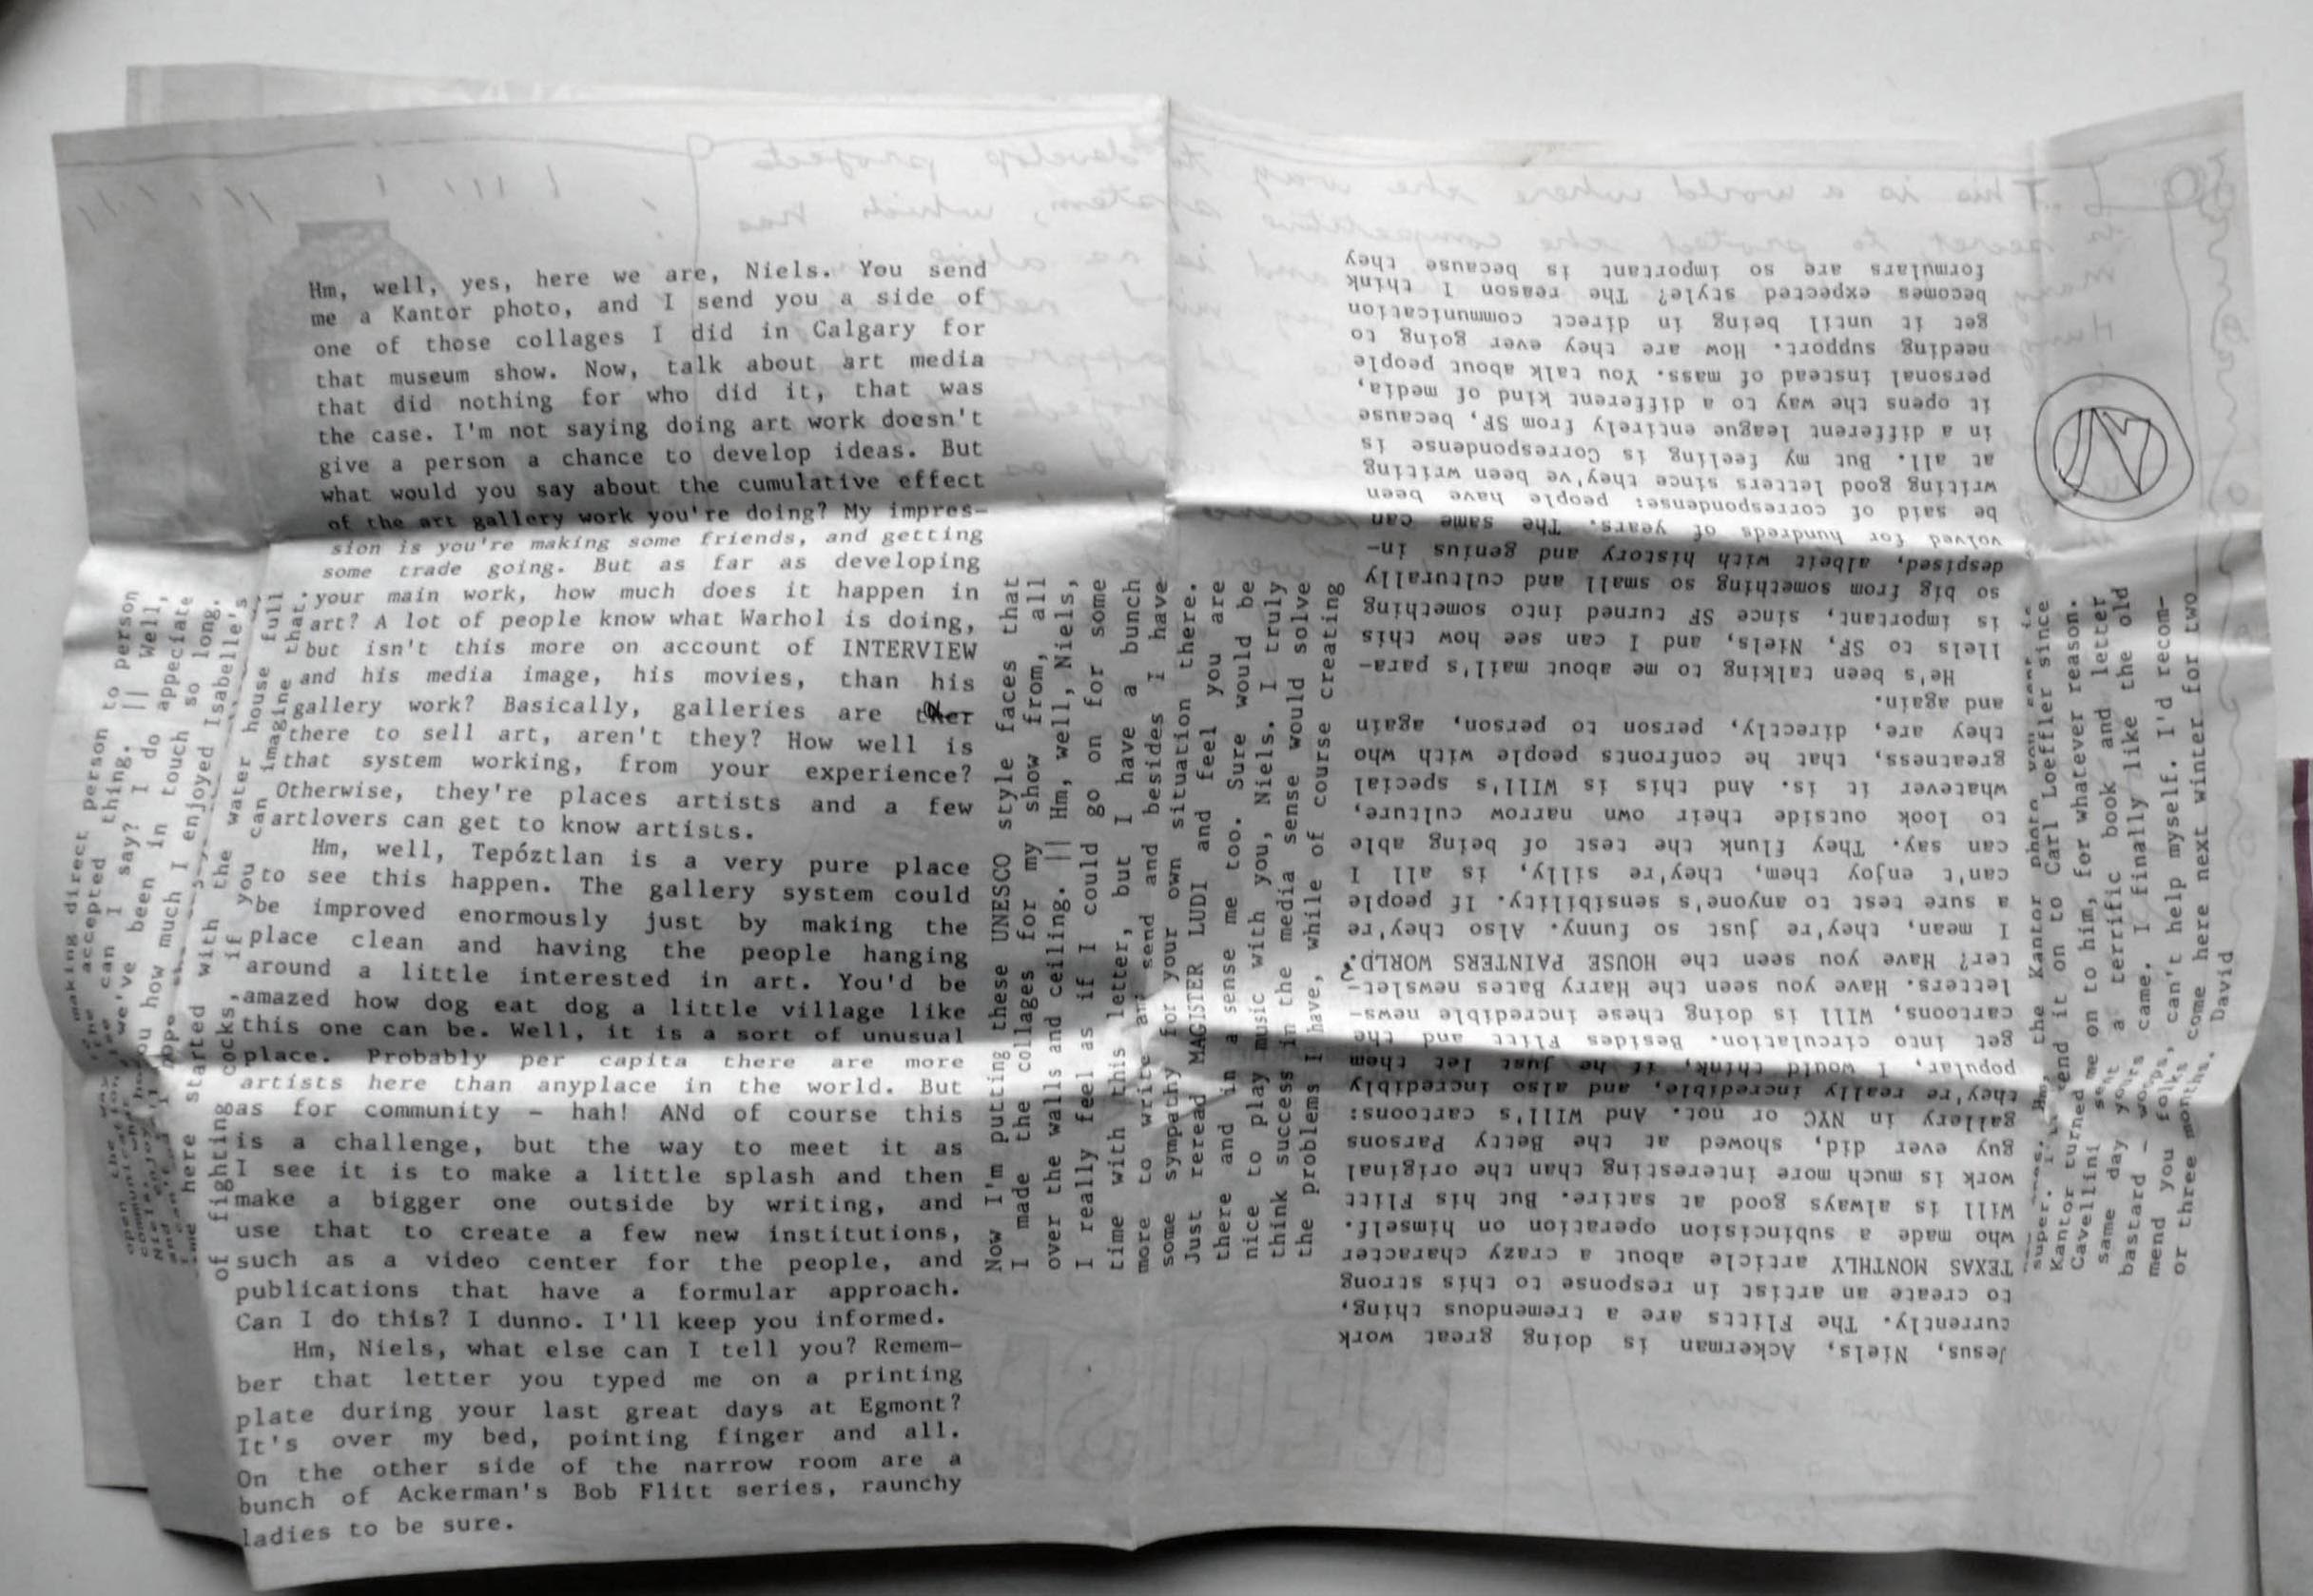 Hm, well, yes, here we are, Niels. You send
me a Kantor photo, and I send you a side of
one of those collages I did in Calgary for
that museum show. Now, talk about art media
that did nothing for who did it, that was
the case. I'm not saying doing art work doesn't
give a person a chance to develop ideas. But
what would you say about the cumulative effect
of the art gallery work you're doing? My impres-
sion is you're making some friends, and getting
some trade going. But as far as developing
your main work, how much does it happen in
art? A lot of people know what Warhol is doing,
but isn't this more on account of INTERVIEW
and his media image, his movies, than his
gallery work? Basically, galleries are
there to sell art, aren't they? How well is
that system working, from your experience?
Otherwise, they're places artists and a few
artlovers can get to know artists.
Hm, well, Tepóztlan is a very pure place
to see this happen. The gallery system could
be improved enormously just by making the
place clean and having the people hanging
around a little interested in art. You'd be
amazed how dog eat dog a little village like
this one can be. Well, it is a sort of unusual
place. Probably per capita there are more
artists here than anyplace in the world. But
as for community - hah! ANd of course this
is a challenge, but the way to meet it as
I see it is to make a little splash and then
make a bigger one outside by writing, and
use that to create a few new institutions,
such as a video center for the people, and
publications that have a formular approach.
Can I do this? I dunno. I'll keep you informed.
Hm, Niels, what else can I tell you? Remem-
ber that letter you typed me on a printing
plate during your last great days at Egmont?
It's over my bed, pointing finger and all.
On the other side of the narrow room are a
bunch of Ackerman's Bob Flitt series, raunchy
ladies to be sure.
Jesus, Niels, Ackerman is doing great work
currently. The Flitts are a tremendous thing,
to create an artist in response to this strong
TEXAS MONTHLY article about a crazy character
who made a subincision operation on himself.
Will is always good at satire. But his Flitt
work is much more interesting than the original
guy ever did, showed at the Betty Parsons
gallery in NYC or not. And Will's cartoons:
they're really incredible, and also incredibly
popular, I would think, if he just let them
get into circulation. Besides Flitt and the
cartoons, Will is doing these incredible news-
letters. Have you seen the Harry Bates newslet-
ter? Have you seen the HOUSE PAINTERS WORLD?
I mean, they're just so funny. Also they're
a sure test to anyone's sensibility. If people
can't enjoy them, they're silly, is all I
can say. They flunk the test of being able
to look outside their own narrow culture,
whatever it is. And this is Will's special
greatness, that he confronts people with who
they are, directly, person to person, again
and again.
He's been talking to me about mail's para-
llels to SF, Niels, and I can see how this
is important, since SF turned into something
so big from something so small and culturally
despised, albeit with history and genius in-
volved for hundreds of years. The same can
be said of correspondense: people have been
writing good letters since they've been writing
at all. But my feeling is Correspondense is
in a different league entirely from SF, because
it opens the way to a different kind of media,
personal instead of mass. You talk about people
needing support. How are they ever going to
get it until being in direct communication
becomes expected style? The reason I think
formulars are so important is because they
open the way
making direct person to person
the accepted thing. || Well,
can I say? I do appreciate
we've been in touch so long.
you how much I enjoyed Isabelle's
time here started with the water house full
of fighting cocks, if you can imagine that.
Now I'm putting these UNESCO style faces that
I made the collages for my show from, all
over the walls and ceiling. || Hm, well, Niels,
I really feel as if I could go on for some
time with this letter, but I have a bunch
more to write and send and besides I have
some sympathy for your own situation there.
Just reread MAGISTER LUDI and feel you are
there and in a sense me too. Sure would be
nice to play music with you, Niels. I truly
think success in the media sense would solve
the problems I have, while of course creating
super. the Kantor photo you sent is
send it on to Carl Loeffler since
Kantor turned me on to him, for whatever reason.
Cavellini sent a terrific book and letter
same day yours came. I finally like the old
bastard - woops, can't help myself. I'd recom-
mend you folks come here next winter for two
or three months. David